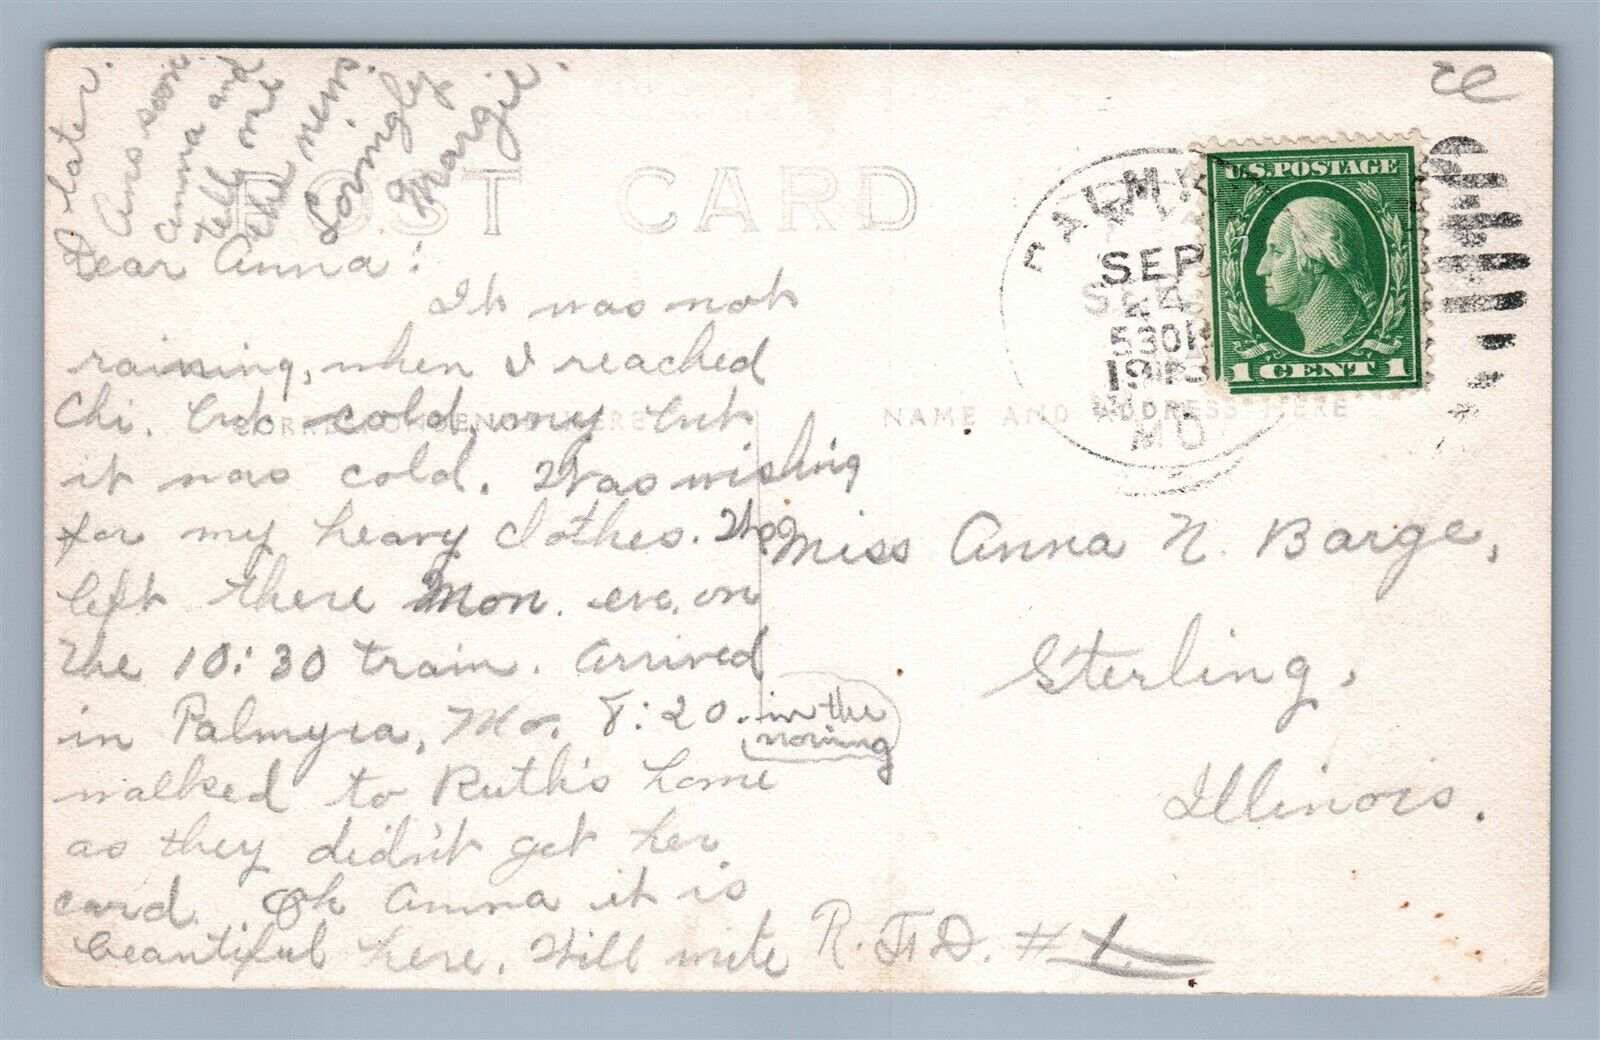 POST CARD
CORRESPONDENCE HERE
NAME AND ADDRESS HERE
PALMYRA
SEP
24
530P
191
MO.
U.S. POSTAGE
1 CENT 1
Dear Anna:
It was not
raining, when I reached
Chi. but cold, my but
it was cold. Was wishing
for my heavy clothes.
left there Mon. eve. on
the 10:30 train. Arrived
in Palmyra, Mo. 8:20. in the
morning
walked to Ruth's home
as they didn't get her
card. Oh Anna it is
beautiful here. Will write
later.
Ans soon
Anna and
tell me
the news.
Lovingly
Margie.
Miss Anna N. Barge,
Sterling,
Illinois.
R.F.D. #1.